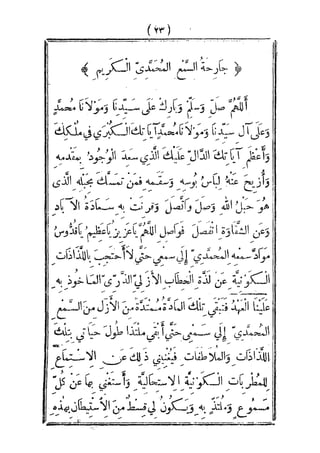 ( ٦٣ )
﴿ جَارِحَةُ السَّمْعِ المُحَمَّدِىِّ الْـكَرِيمِ ﴾
أَللّٰهُمَّ صَلِّ وَسَلِّمْ وَبَارِكْ عَلَى سَـيِّدِنَا وَمَوْلَانَا مُحَمَّدٍ
وَعَلَى آلِ سَيِّدِنَا وَمَوْلَانَا مُحَمَّدٍ آيَاتِكَ الْـكُبْرَى فِى مُلْكِكَ
وَأَعْظَمِ آيَاتِكَ الدَّالِّ عَلَيْكَ الَّذِى سَعِدَ الْوُجُودُ بِمَقْدَمِهِ
وَأُزِيحَ عَنْهُ لِبَاسُ بُوسِهِ وَسَقَمِهِ فَمَنْ تَمَسَّكَ بِحَبْلِهِ الَّذِى
هُوَ حَبْلُ اللّٰهِ وَصَلَ وَاتَّصَلَ وَقُرِنَتْ بِهِ سَـعَادَةُ الْآبَادِ
وَعَنِ الشَّقَاوَةِ انْفَصَلَ فَوَاصِلِ اللّٰهُمَّ يَاعَزِيزُ يَاعَظِيمُ يَاقُدُّوسُ
مَوَادَّ سَمْعِهِ المُحَمَّدِىِّ إِلَى سَمْعِى حَتَّى لَا أَحْتَجِبَ بِاللَّذَاذَاتِ
الْـكَوْنِيَّةِ عَنْ لَذَّةِ الْخِطَابِ الْأَزَلِىِّ الذَّرِّىِّ المَأْخُوذِ بِهِ
عَلَيْنَا الْعَهْدُ فَتَبْقَى تِلْكَ المَادَّةُ مُمْتَدَّةً مِنَ الْأَزَلِ مِنَ السَّمْعِ
المُحَمَّدِىِّ إِلَى سَـمْعِى حَتَّى أَبْقَى مُلْتَذًّا طُولَ حَيَاتِى بِتِلْكَ
اللَّذَاذَاتِ وَالْمُلَاطَفَاتِ فَيُغْنِينِى ذَلِكَ عَنِ الِاسْـتِمَاعِ
لِلْمُطْرِبَاتِ الْـكَوْنِيَّةِ الِاسْتِحَالِيَّةِ وَأَسْتَغْنِى بِهَا عَنْ كُلِّ
مَسْمُوعٍ وَمُلْتَذٍّ بِهِ وَيَـكُونُ لِى قِسْطٌ مِنَ الْاسْتِيطَانِ بِهَذِهِ